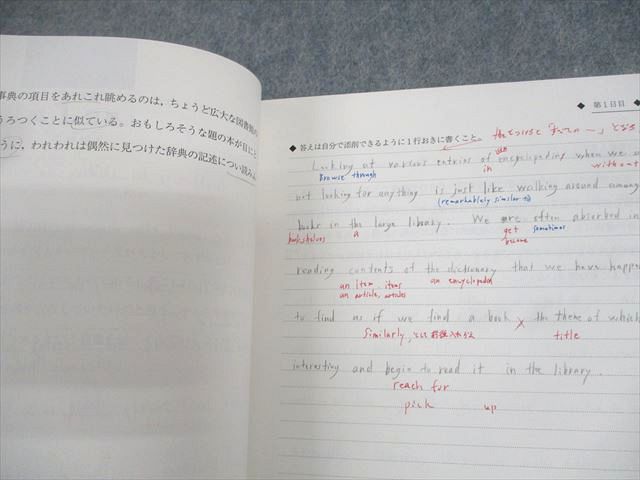 事典の項目をあれこれ眺めるのは,ちょうど広大な図書館の
うろつくことに似ている。おもしろそうな題の本が目にと
うに,われわれは偶然に見つけた辞典の記述につい読み
◆ 第1日目 ◆
◆ 答えは自分で添削できるように1行おきに書くこと。
Looking at various entries of encyclopedias when we a
Browse through
in
an
without
not looking for anything is just like walking around among
(remarkably similar to)
books in the large library. We are often absorbed in
bookshelves a get sometimes
become
reading contents of the dictionary that we have happe
an item, items an encyclopedia
an article, articles
to find as if we find a book × the theme of which
Similarly, title
interesting and begin to read it in the library.
reach for
pick up